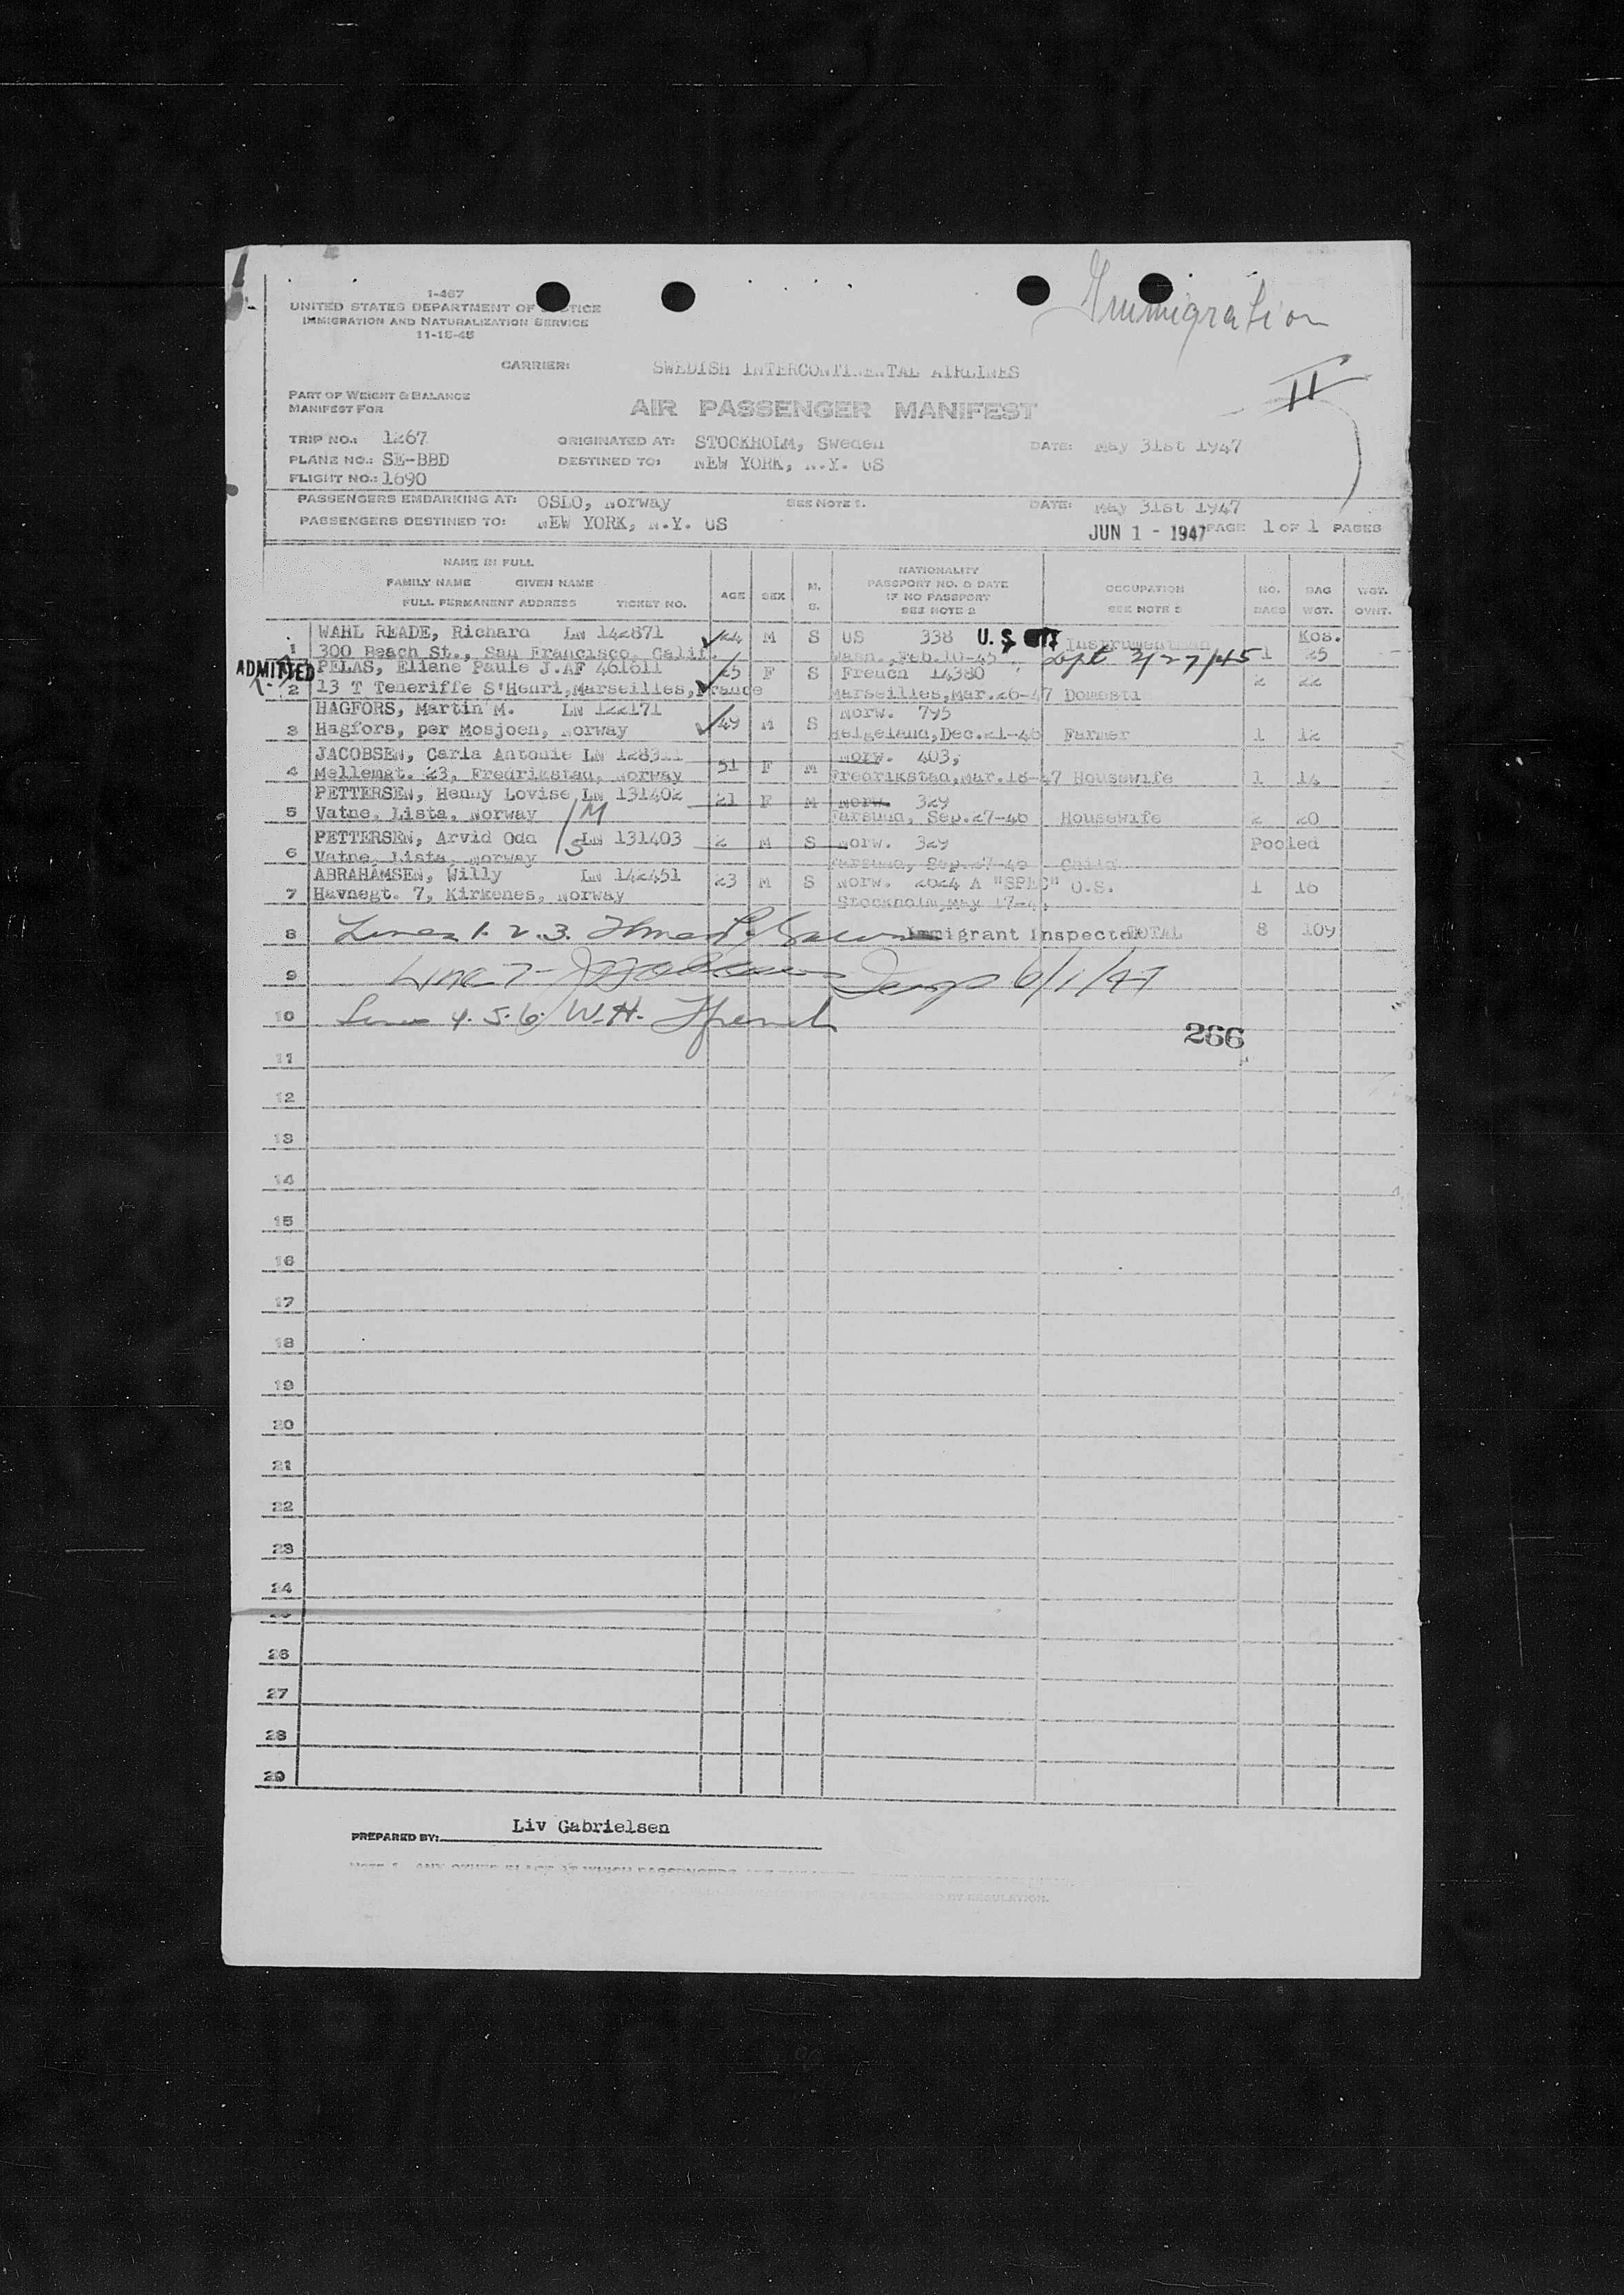 Immigration
I-467
UNITED STATES DEPARTMENT OF JUSTICE
IMMIGRATION AND NATURALIZATION SERVICE
11-15-45
CARRIER: SWEDISH INTERCONTINENTAL AIRLINES
II
PART OF WEIGHT & BALANCE
MANIFEST FOR
AIR PASSENGER MANIFEST
TRIP NO.: 1267 ORIGINATED AT: STOCKHOLM, Sweden DATE: May 31st 1947
PLANE NO.: SE-BBD DESTINED TO: NEW YORK, N.Y. US
FLIGHT NO.: 1690
PASSENGERS EMBARKING AT: OSLO, Norway SEE NOTE 1. DATE: May 31st 1947
PASSENGERS DESTINED TO: NEW YORK, N.Y. US JUN 1 - 1947 PAGE 1 OF 1 PAGES
NAME IN FULL
FAMILY NAME GIVEN NAME
FULL PERMANENT ADDRESS TICKET NO.
AGE SEX M. S.
NATIONALITY
PASSPORT NO. & DATE
IF NO PASSPORT
SEE NOTE 2
OCCUPATION
SEE NOTE 3
NO. BAGS
BAG WGT.
WGT. OVHT.
WAHL READE, Richard LN 142871 24 M S US 338 U.S. Instrumentman Kos.
1 300 Beach St., San Francisco, Calif. Wash., Feb.10-45 Sept 3/27/45 1 25
ADMITTED PELAS, Eliane Paule J.AF 461611 25 F S French 14380 2 22
2 13 T Teneriffe S'Henri,Marseilles,France Marseilles,Mar.26-47 Domesti
HAGFORS, Martin M. LN 122171 49 M S Norw. 795
3 Hagfors, per Mosjoen, Norway Helgeland,Dec.21-46 Farmer 1 12
JACOBSEN, Carla Antonie LN 51 F M Norw. 403,
4 Mellemgt. 23, Fredrikstad, Norway Fredrikstad,Mar.18-47 Housewife 1 14
PETTERSEN, Henny Lovise LN 131402 21 F M Norw. 329
5 Vatne, Lista, Norway M Farsund, Sep.27-46 Housewife 2 20
PETTERSEN, Arvid Odd S LN 131403 2 M S Norw. 329 Pooled
6 Vatne, Lista, Norway Farsund, Sep.27-46 Child
ABRAHAMSEN, Willy LN 142451 23 M S Norw. 2024 A "SPEC" O.S. 1 16
7 Havnegt. 7, Kirkenes, Norway Stockholm,May 17-4
8 Lines 1. 2. 3. Immigrant Inspector TOTAL 8 109
9 Line 7- Insp 6/1/47
10 Lines 4. 5. 6. W.H. French
266
11
12
13
14
15
16
17
18
19
20
21
22
23
24
26
27
28
29
PREPARED BY: Liv Gabrielsen